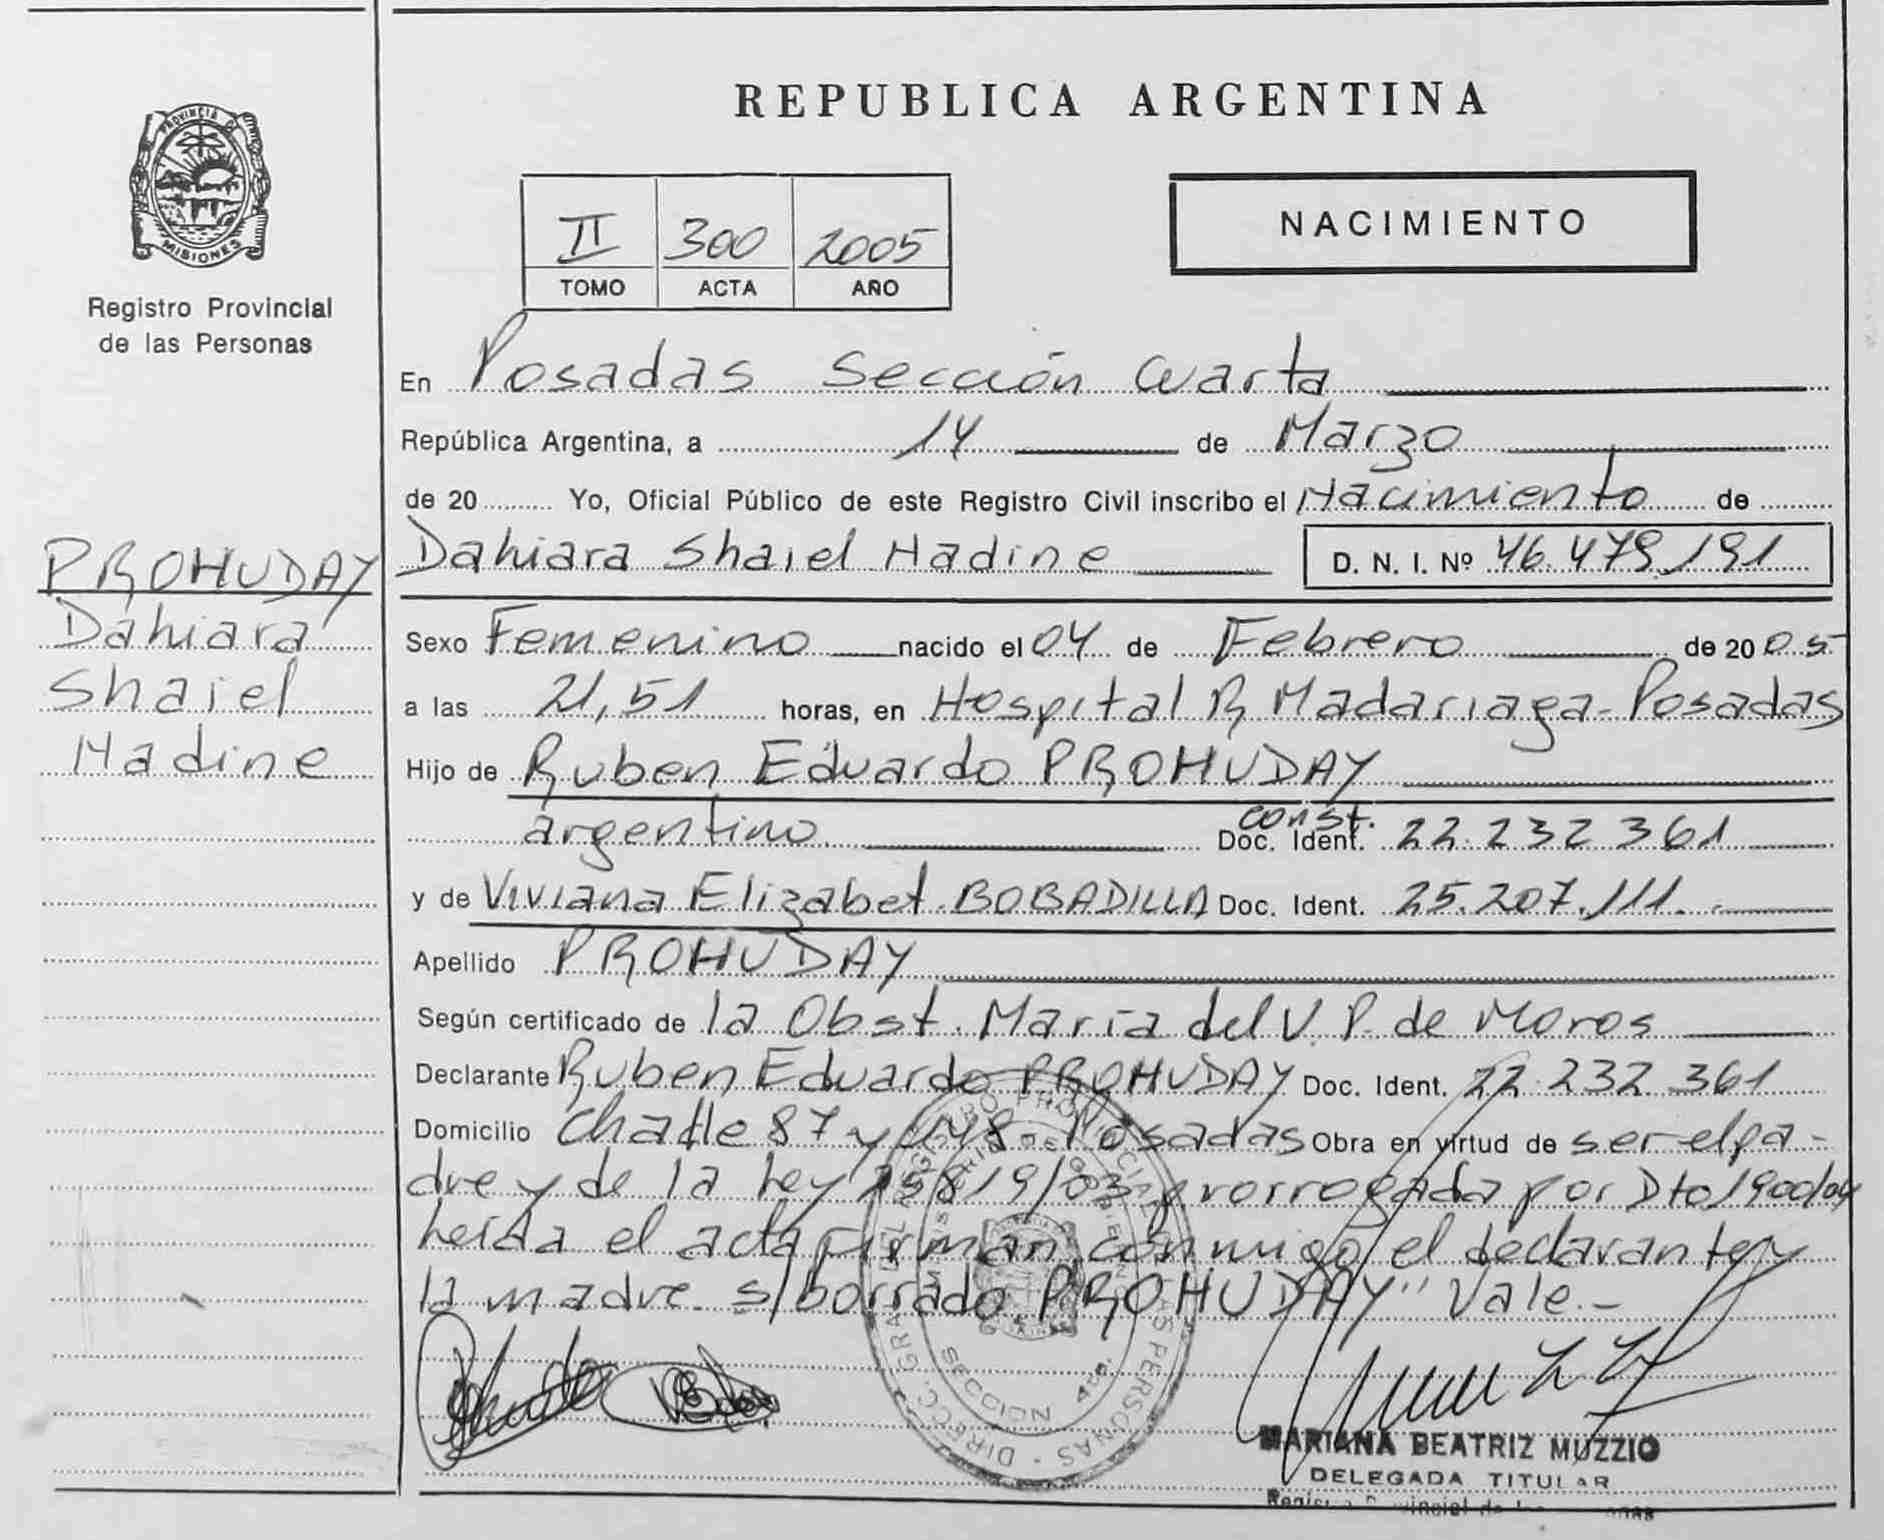 PROVINCIA DE
MISIONES
Registro Provincial
de las Personas
PROHUDAY
Dahiara
Shaiel
Nadine
REPUBLICA ARGENTINA
II 300 2005
TOMO ACTA AÑO
NACIMIENTO
En Posadas Sección Cuarta
República Argentina, a 14 de Marzo
de 20 Yo, Oficial Público de este Registro Civil inscribo el Nacimiento de
Dahiara Shaiel Nadine D. N. I. Nº 46.479.191
Sexo Femenino nacido el 04 de Febrero de 2005
a las 21,51 horas, en Hospital R Madariaga - Posadas
Hijo de Ruben Eduardo PROHUDAY
argentino const. Doc. Ident. 22.232.361
y de Viviana Elizabet BOBADILLA Doc. Ident. 25.207.111.
Apellido PROHUDAY
Según certificado de la Obst. María del V. P. de Moros
Declarante Ruben Eduardo PROHUDAY Doc. Ident. 22.232.361
Domicilio Challe 87 y 148 - Posadas Obra en virtud de ser el pa-
dre y de la Ley 25819/03 prorrogada por Dto 1900/04
Leída el acta firman conmigo el declarante y
la madre. s/borrado PROHUDAY" Vale.-
SECCION 4ta.
MARIANA BEATRIZ MUZZIO
DELEGADA TITULAR